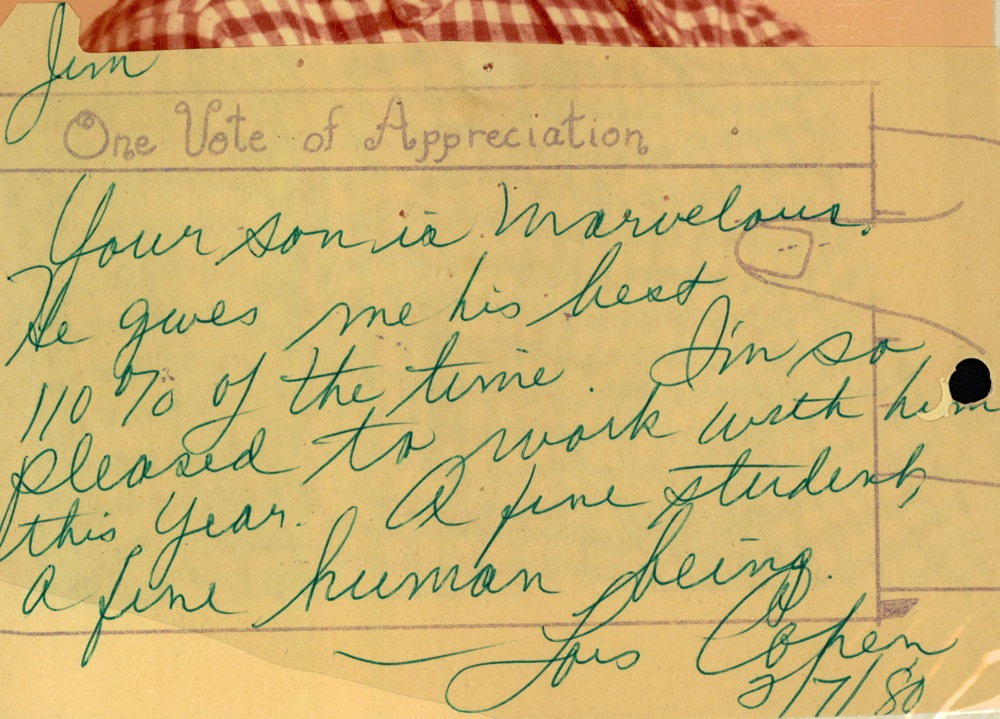 Jim
One Vote of Appreciation
Your son is Marvelous.
He gives me his best
110% of the time. I'm so
pleased to work with him
this year. A fine student,
a fine human being.
— Lois Cohen
2/7/80